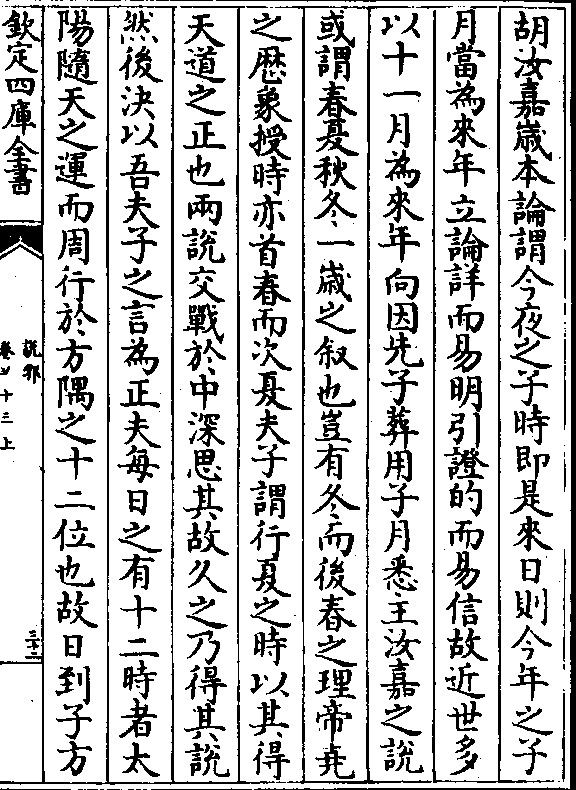 胡汝嘉嵗本論謂今夜之子時即是來日則今年之子
月當為來年立論詳而易明引證的而易信故近世多
以十一月為來年向因先子葬用子月悉主汝嘉之説
或謂春夏秋冬一嵗之叙也豈有冬而後春之理帝堯
之歴象授時亦首春而次夏夫子謂行夏之時以其得
天道之正也兩説交戰於中深思其故久之乃得其説
然後決以吾夫子之言為正夫每日之有十二時者太
陽隨天之運而周行於方隅之十二位也故日到子方
欽定四庫全書
説郛
卷 十三上
三十二